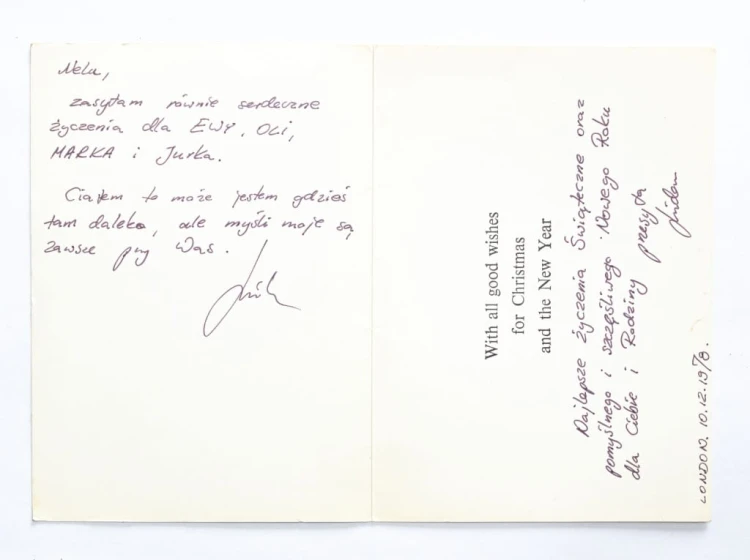 Nelu,
zasyłam równie serdeczne
życzenia dla EWY, OLI,
MARKA i Jurka.
Ciałem to może jestem gdzieś
tam daleko, ale myśli moje są
zawsze przy Was.
With all good wishes
for Christmas
and the New Year
Najlepsze życzenia Świąteczne oraz
pomyślnego i szczęśliwego Nowego Roku
dla Ciebie i Rodziny przesyła
LONDON, 10.12.1978.